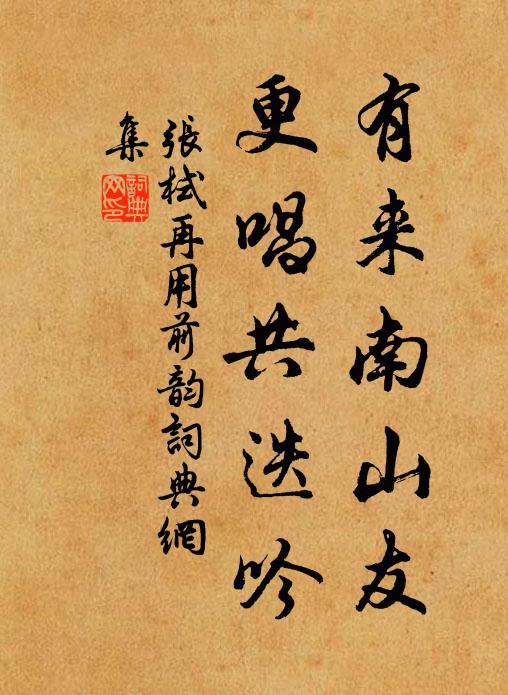 有来南山友
更唱共迭吟
張栻再用前韵詞典網
集
詞典
网印